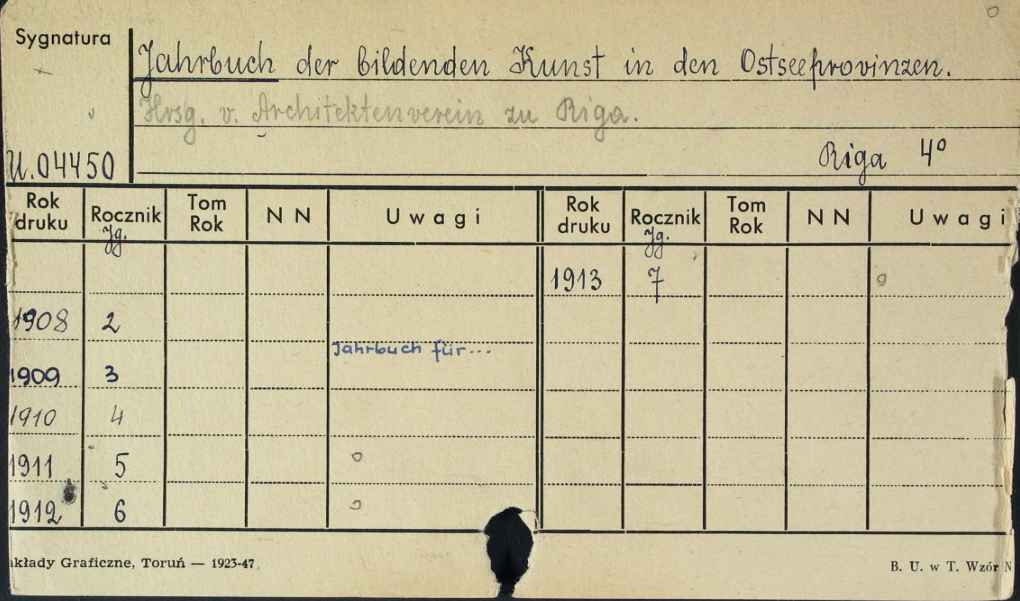 Sygnatura
Jahrbuch der bildenden Kunst in den Ostseeprovinzen.
Hrsg. v. Architektenverein zu Riga.
U.04450
Riga 4º
Rok druku Rocznik Tom Rok N N Uwagi Rok druku Rocznik Tom Rok N N Uwagi
Jg. Jg.
1913 7
1908 2
Jahrbuch für...
1909 3
1910 4
1911 5
1912 6
kłady Graficzne, Toruń — 1923-47 B. U. w T. Wzór N